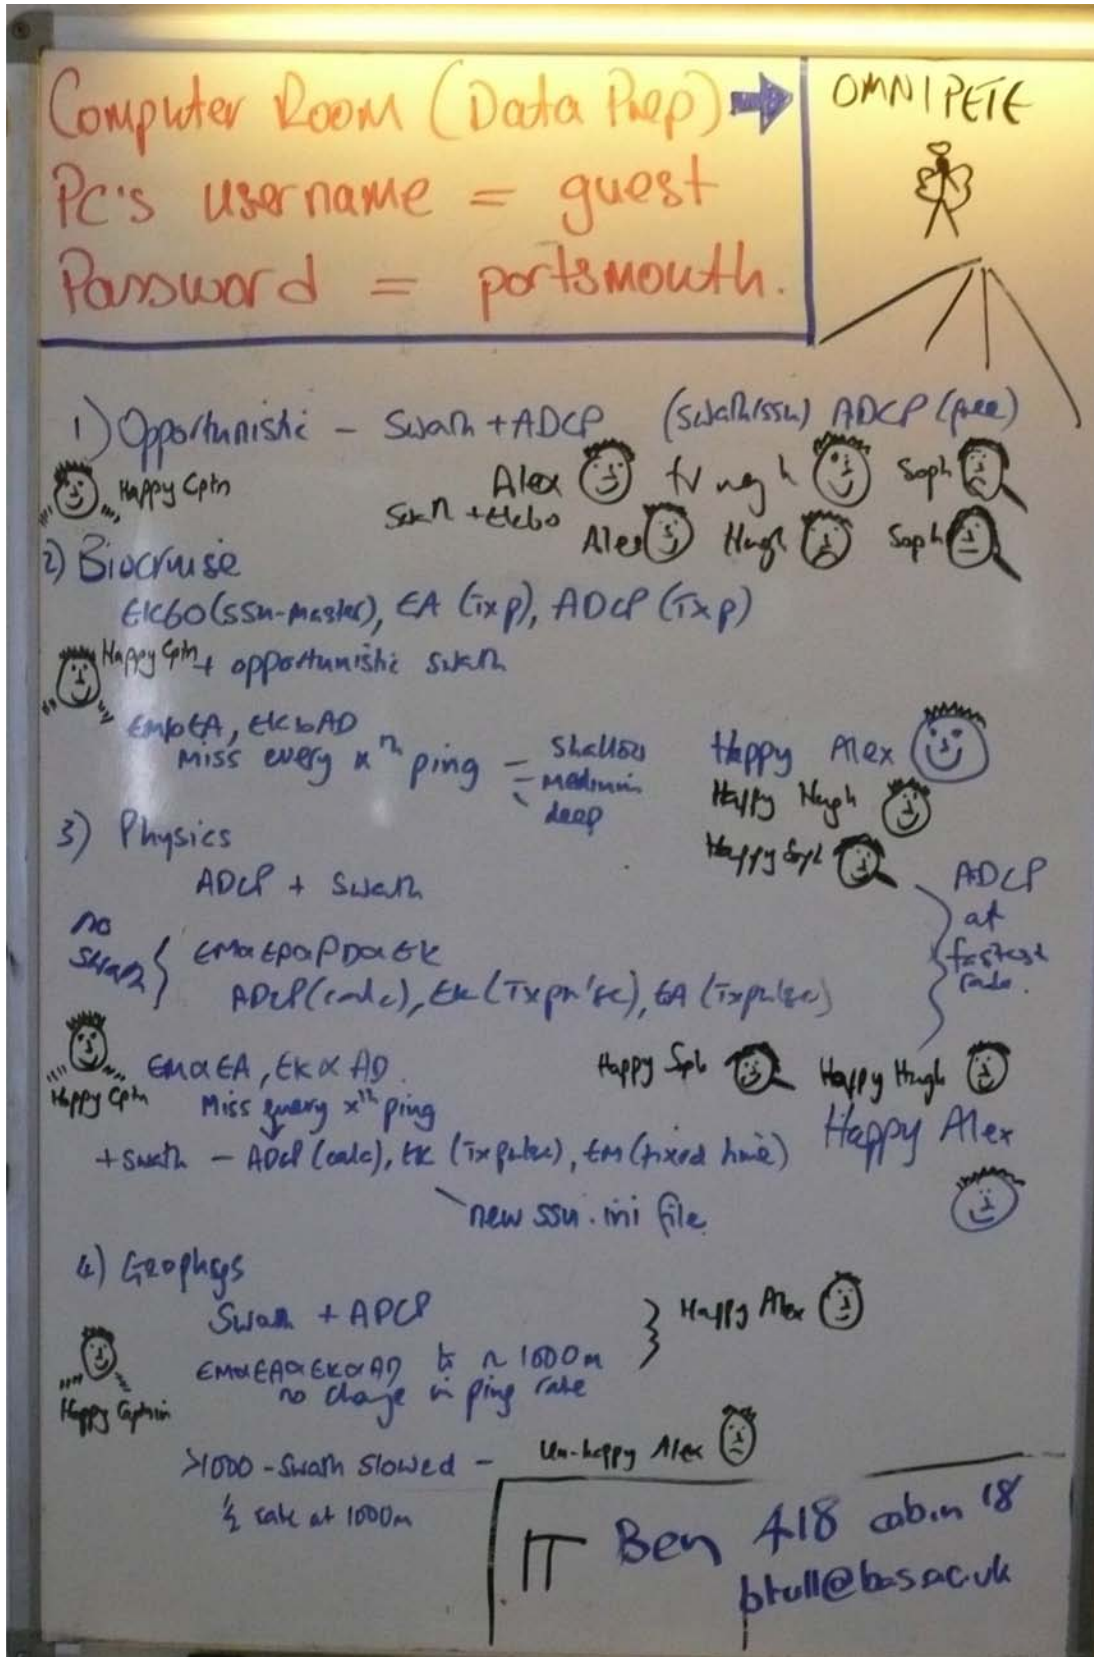 Computer Room (Data Prep)
PC's username = guest
Password = portsmouth.
OMNIPETE
1) Opportunistic - Swath + ADCP (swath/ssu) ADCP (free)
Happy Cptn
Alex Hugh Soph
Swath + EK60
Alex Hugh Soph
2) Biocruise
EK60 (SSU-master), EA (Txp), ADCP (Txp)
Happy Cptn
+ opportunistic swath
Miss every xth ping - shallow
- medium
- deep
Happy Alex
Happy Hugh
Happy Soph
3) Physics
ADCP + Swath
ADCP
at
fastest
rate.
no
swath
ADCP (calc), EK (Txpulse), EA (Txpulse)
Happy Cptn
EMαEA, EKαAD
Miss every xth ping
Happy Soph Happy Hugh
Happy Alex
+ swath - ADCP (calc), EK (Txpulse), EM (fixed time)
new ssu.ini file
4) Geophys
Swath + ADCP
Happy Alex
EMαEAαEKαAD to ~ 1000m
no change in ping rate
Happy Captain
>1000 - Swath slowed - Un-happy Alex
½ rate at 1000m
IT Ben 418 cabin 18